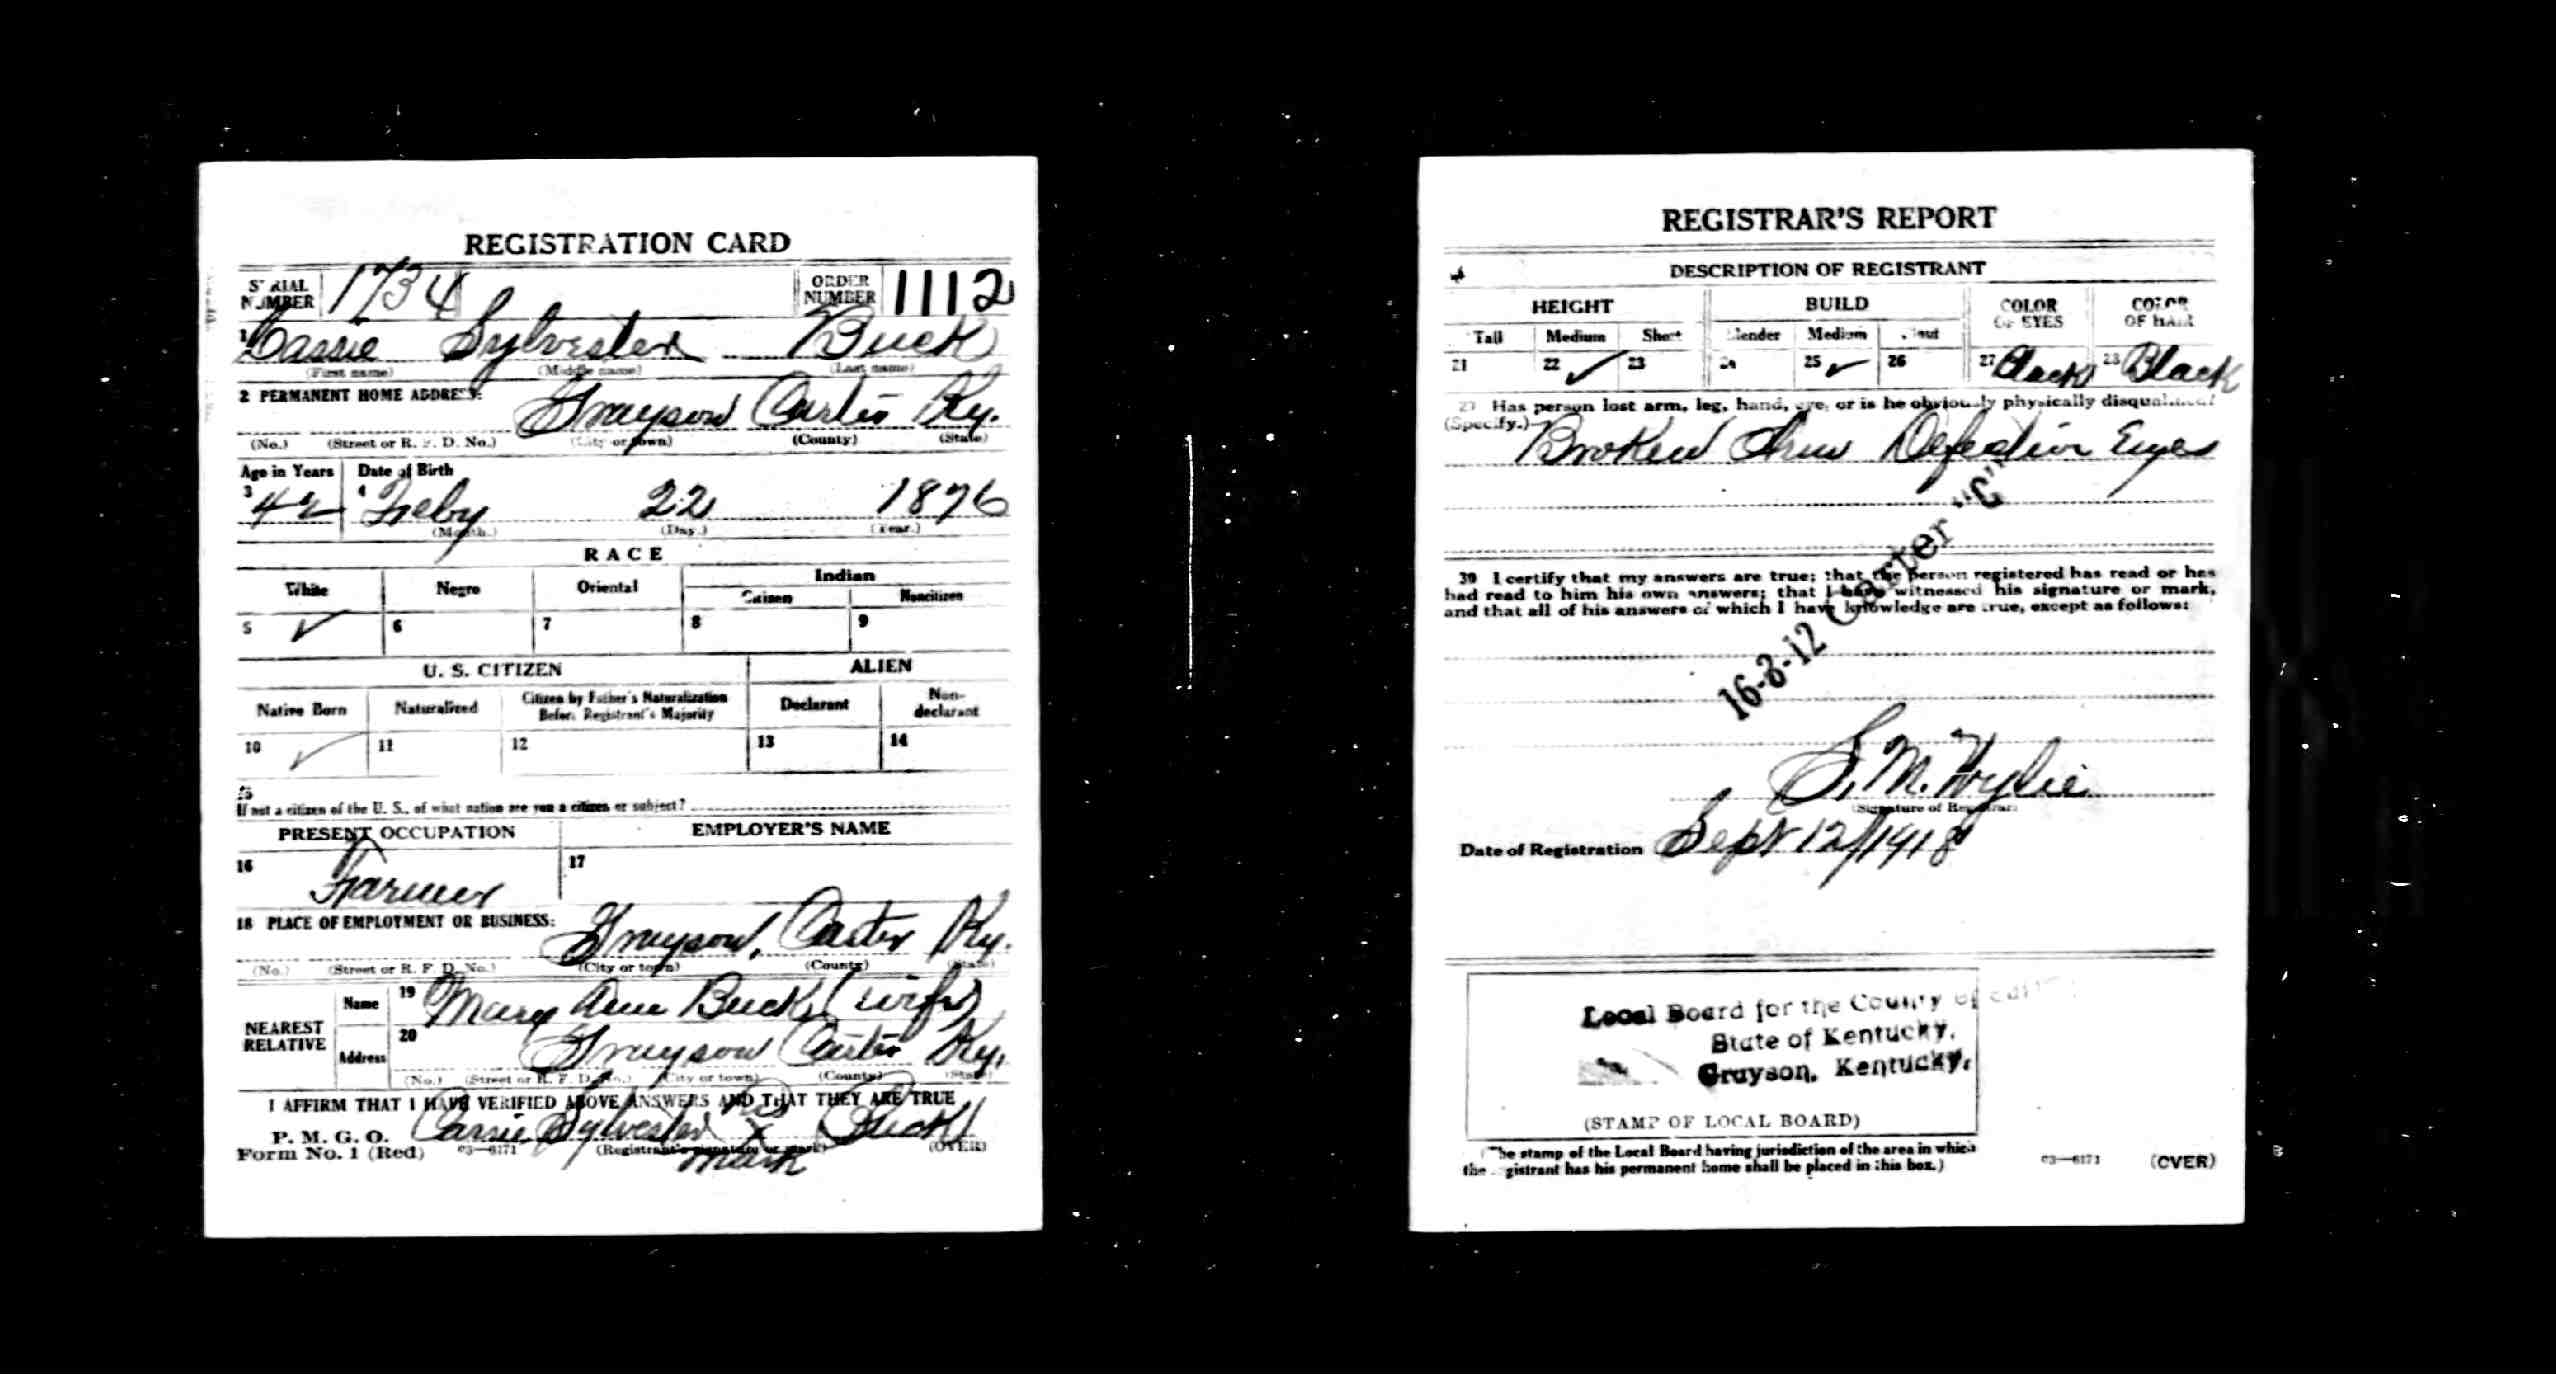 REGISTRATION CARD
SERIAL NUMBER 1734 ORDER NUMBER 1112
1 Cassie Sylvester Buck
(First name) (Middle name) (Last name)
2 PERMANENT HOME ADDRESS:
Grayson Carter Ky.
(No.) (Street or R. F. D. No.) (City or town) (County) (State)
Age in Years Date of Birth
3 42 4 Feby 22 1876
(Month.) (Day.) (Year.)
RACE
White Negro Oriental Indian
Citizen Noncitizen
5 ✓ 6 7 8 9
U. S. CITIZEN ALIEN
Native Born Naturalized Citizen by Father's Naturalization Before Registrant's Majority Declarant Non-declarant
10 ✓ 11 12 13 14
15
If not a citizen of the U. S., of what nation are you a citizen or subject?
PRESENT OCCUPATION EMPLOYER'S NAME
16 Farmer 17
18 PLACE OF EMPLOYMENT OR BUSINESS:
Grayson, Carter Ky.
(No.) (Street or R. F. D. No.) (City or town) (County) (State)
NEAREST RELATIVE
Name 19 Mary Ann Buck (wife)
Address 20 Grayson Carter Ky.
(No.) (Street or R. F. D. No.) (City or town) (County) (State)
I AFFIRM THAT I HAVE VERIFIED ABOVE ANSWERS AND THAT THEY ARE TRUE
P. M. G. O.
Form No. 1 (Red) 03—6171
Cassie Sylvester his X mark Buck
(Registrant's signature or mark) (OVER)
REGISTRAR'S REPORT
DESCRIPTION OF REGISTRANT
HEIGHT BUILD COLOR OF EYES COLOR OF HAIR
Tall Medium Short Slender Medium Stout
21 22 ✓ 23 24 25 ✓ 26 27 Black 28 Black
29 Has person lost arm, leg, hand, eye, or is he obviously physically disqualified?
(Specify.) Broken Arm Defective Eyes
16-3-12 Carter "C"
30 I certify that my answers are true; that the person registered has read or has
had read to him his own answers; that I have witnessed his signature or mark,
and that all of his answers of which I have knowledge are true, except as follows:
S. M. Wylie
(Signature of Registrar)
Date of Registration Sept 12/1918
Local Board for the County of
State of Kentucky,
Grayson, Kentucky,
(STAMP OF LOCAL BOARD)
(The stamp of the Local Board having jurisdiction of the area in which
the registrant has his permanent home shall be placed in this box.)
03—6171 (OVER)